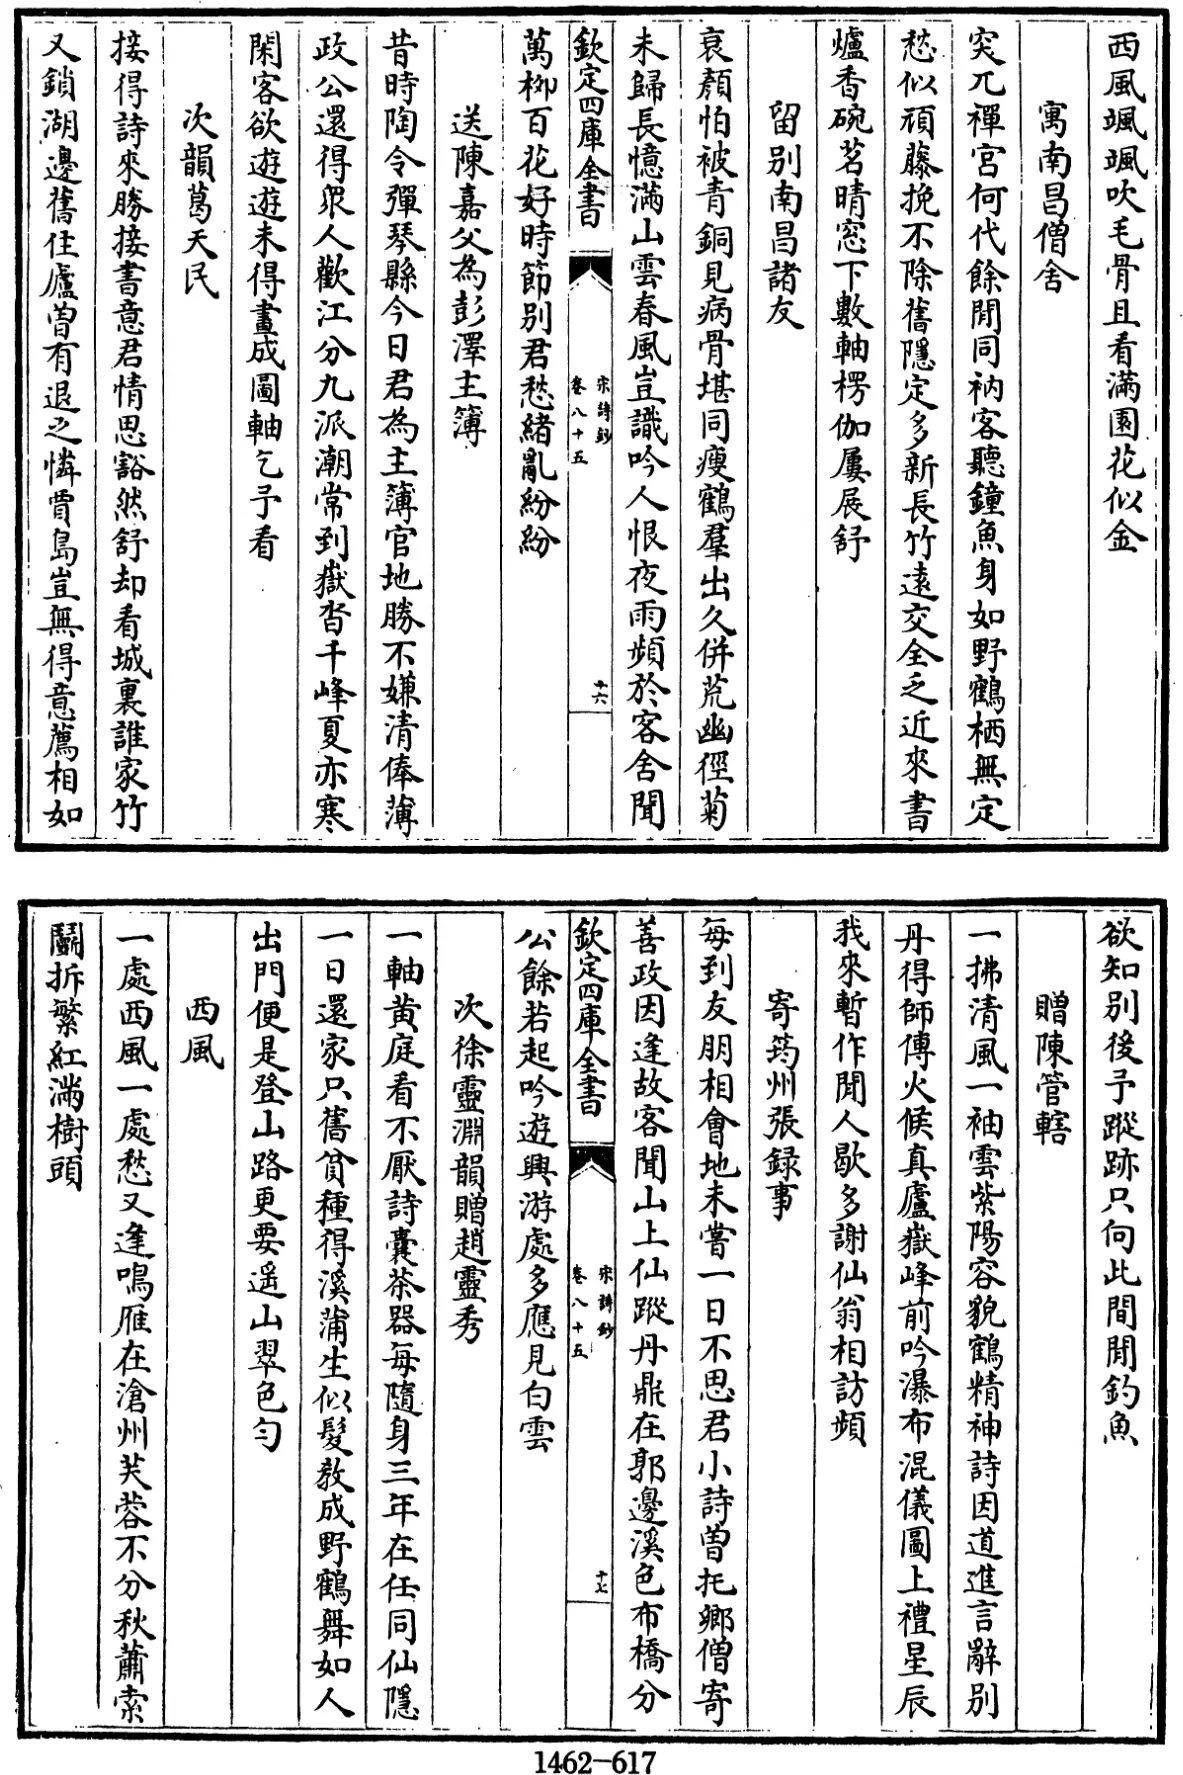 西風颯颯吹毛骨且看滿園花似金
寓南昌僧舍
突兀禪宮何代餘閒同衲客聽鐘魚身如野鶴栖無定
愁似頑藤挽不除舊隱定多新長竹遠交全乏近來書
爐香碗茗晴窓下數軸楞伽屢展舒
留别南昌諸友
衰顔怕被青銅見病骨堪同瘦鶴羣出久併荒幽徑菊
未歸長憶滿山雲春風豈識吟人恨夜雨頻於客舍聞
欽定四庫全書
宋詩鈔
卷八十五
十六
萬栁百花好時節别君愁緒亂紛紛
送陳嘉父為彭澤主簿
昔時陶令彈琴縣今日君為主簿官地勝不嫌清俸薄
政公還得衆人歡江分九派潮常到嶽沓千峰夏亦寒
閑客欲遊遊未得畫成圖軸乞予看
次韻葛天民
接得詩來勝接書意君情思豁然舒却看城裏誰家竹
又鎖湖邊舊住廬曽有退之憐賈島豈無得意薦相如
欲知别後予蹤跡只向此間閒釣魚
贈陳管轄
一拂清風一袖雲紫陽容貌鶴精神詩因道進言辭别
丹得師傳火候真廬嶽峰前吟瀑布混儀圖上禮星辰
我來暫作閒人歇多謝仙翁相訪頻
寄筠州張録事
每到友朋相會地未嘗一日不思君小詩曽托鄉僧寄
善政因逢故客聞山上仙蹤丹鼎在郭邊溪色布橋分
欽定四庫全書
宋詩鈔
卷八十五
十七
公餘若起吟遊興游處多應見白雲
次徐靈淵韻贈趙靈秀
一軸黄庭看不厭詩囊茶器每隨身三年在任同仙隱
一日還家只舊貧種得溪蒲生似髮教成野鶴舞如人
出門便是登山路更要遥山翠色勻
西風
一處西風一處愁又逢鳴雁在滄州芙蓉不分秋蕭索
鬭拆繁紅滿樹頭
1462-617